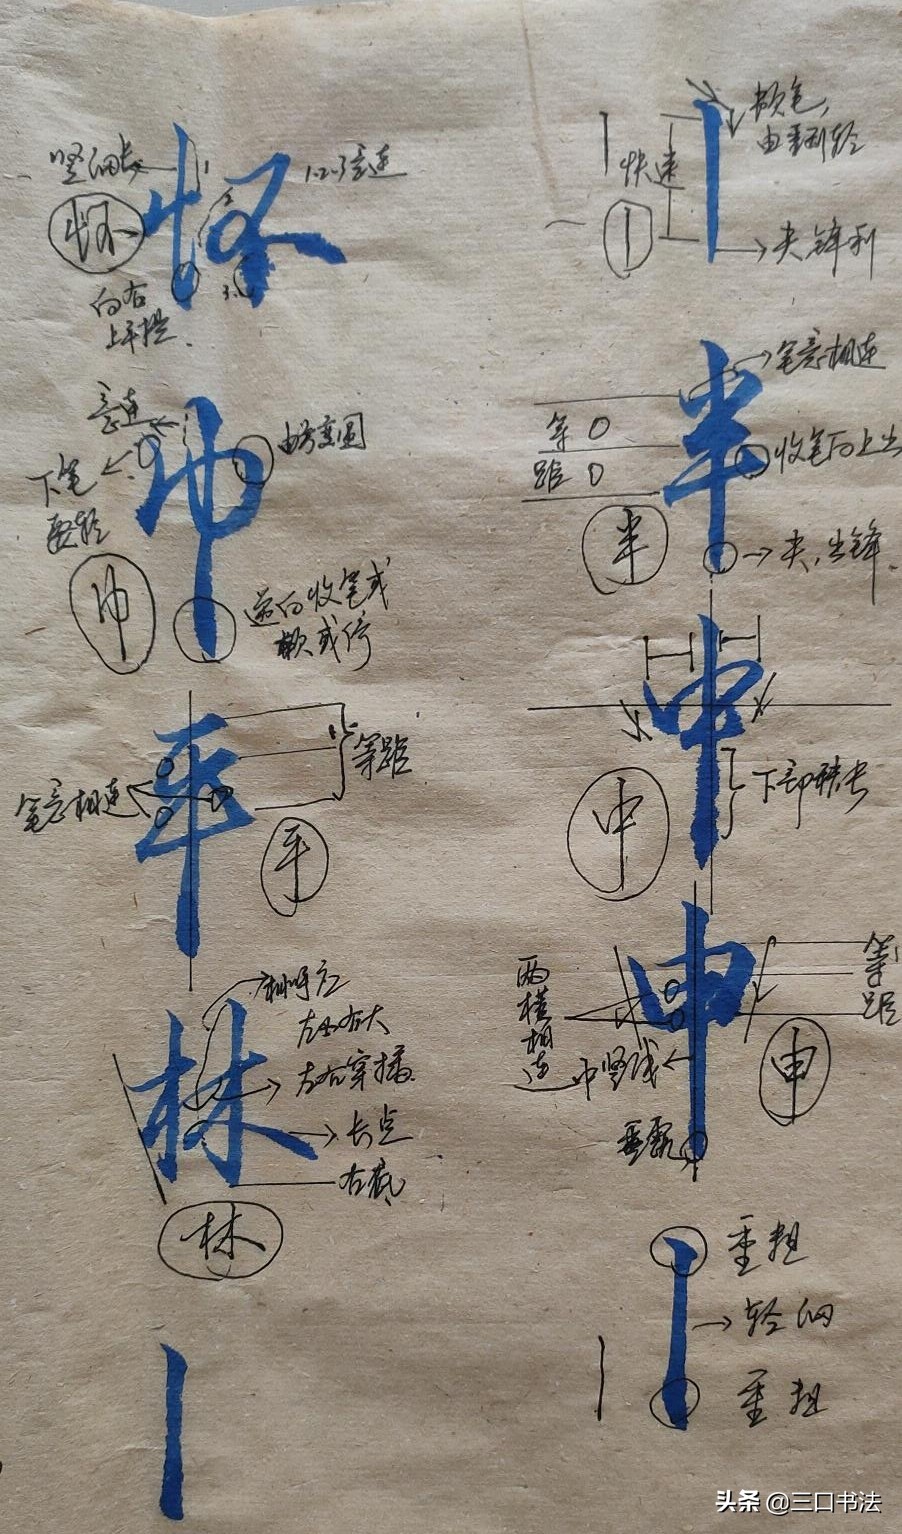 顿笔,
由重到轻
快速
尖锋利
笔意相连
等
距
收笔向上出
半
尖,出锋.
下部稍长
中
等
距
两横相连
中竖线
垂露
申
重粗
轻细
重粗
竖细长
1.2.3意连
怀
怀
向右
上平提.
意连
下笔
要轻
由方变圆
巾
巾
逆向收笔或
顿或停
平
等距
笔意相连
平
相呼应
左小右大
左右穿插
长点
右底
林
林
半
中
申
头条 @三口书法